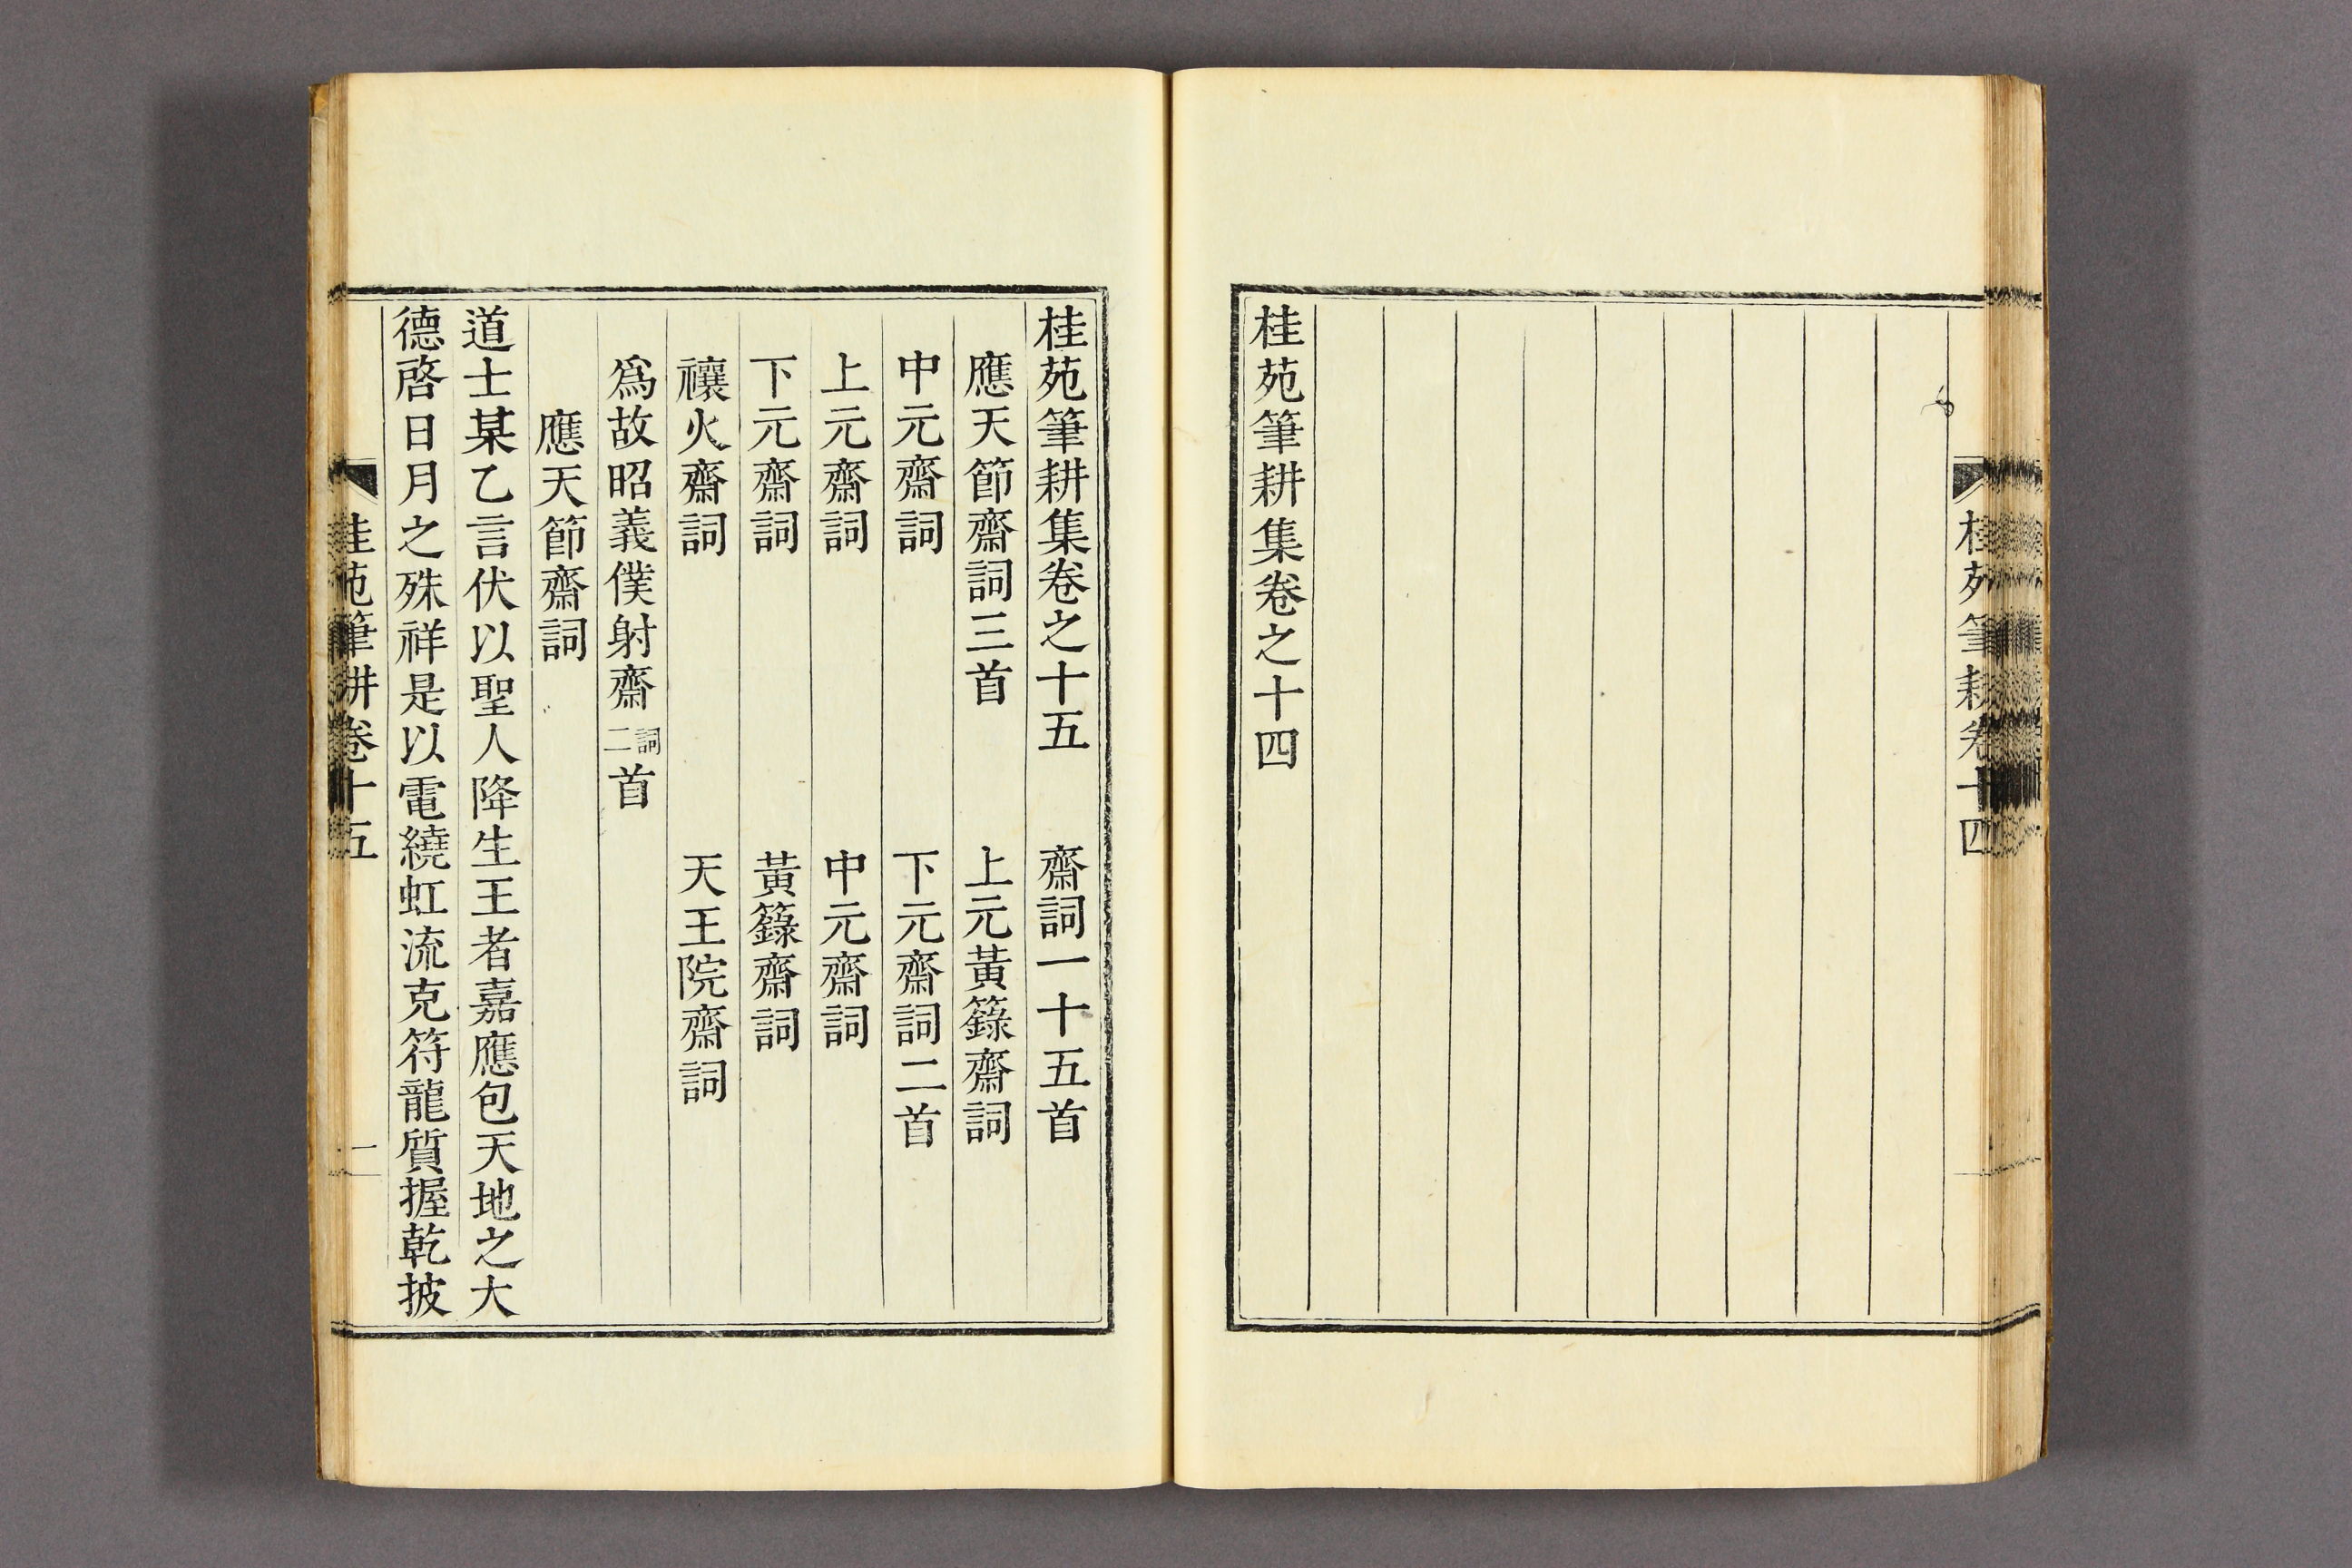 桂苑筆耕卷十四
桂苑筆耕集卷之十四
桂苑筆耕集卷之十五　齋詞一十五首
應天節齋詞三首　上元黃籙齋詞
中元齋詞　下元齋詞二首
上元齋詞　中元齋詞
下元齋詞　黃籙齋詞
禳火齋詞　天王院齋詞
爲故昭義僕射齋詞二首
應天節齋詞
道士某乙言伏以聖人降生王者嘉應包天地之大
德啓日月之殊祥是以電繞虹流克符龍質握乾披
桂苑筆耕卷十五　一